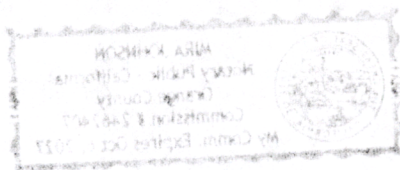 MIRA JOHNSON
Notary Public - California
Orange County
Commission #
My Comm. Expires Oct 2027